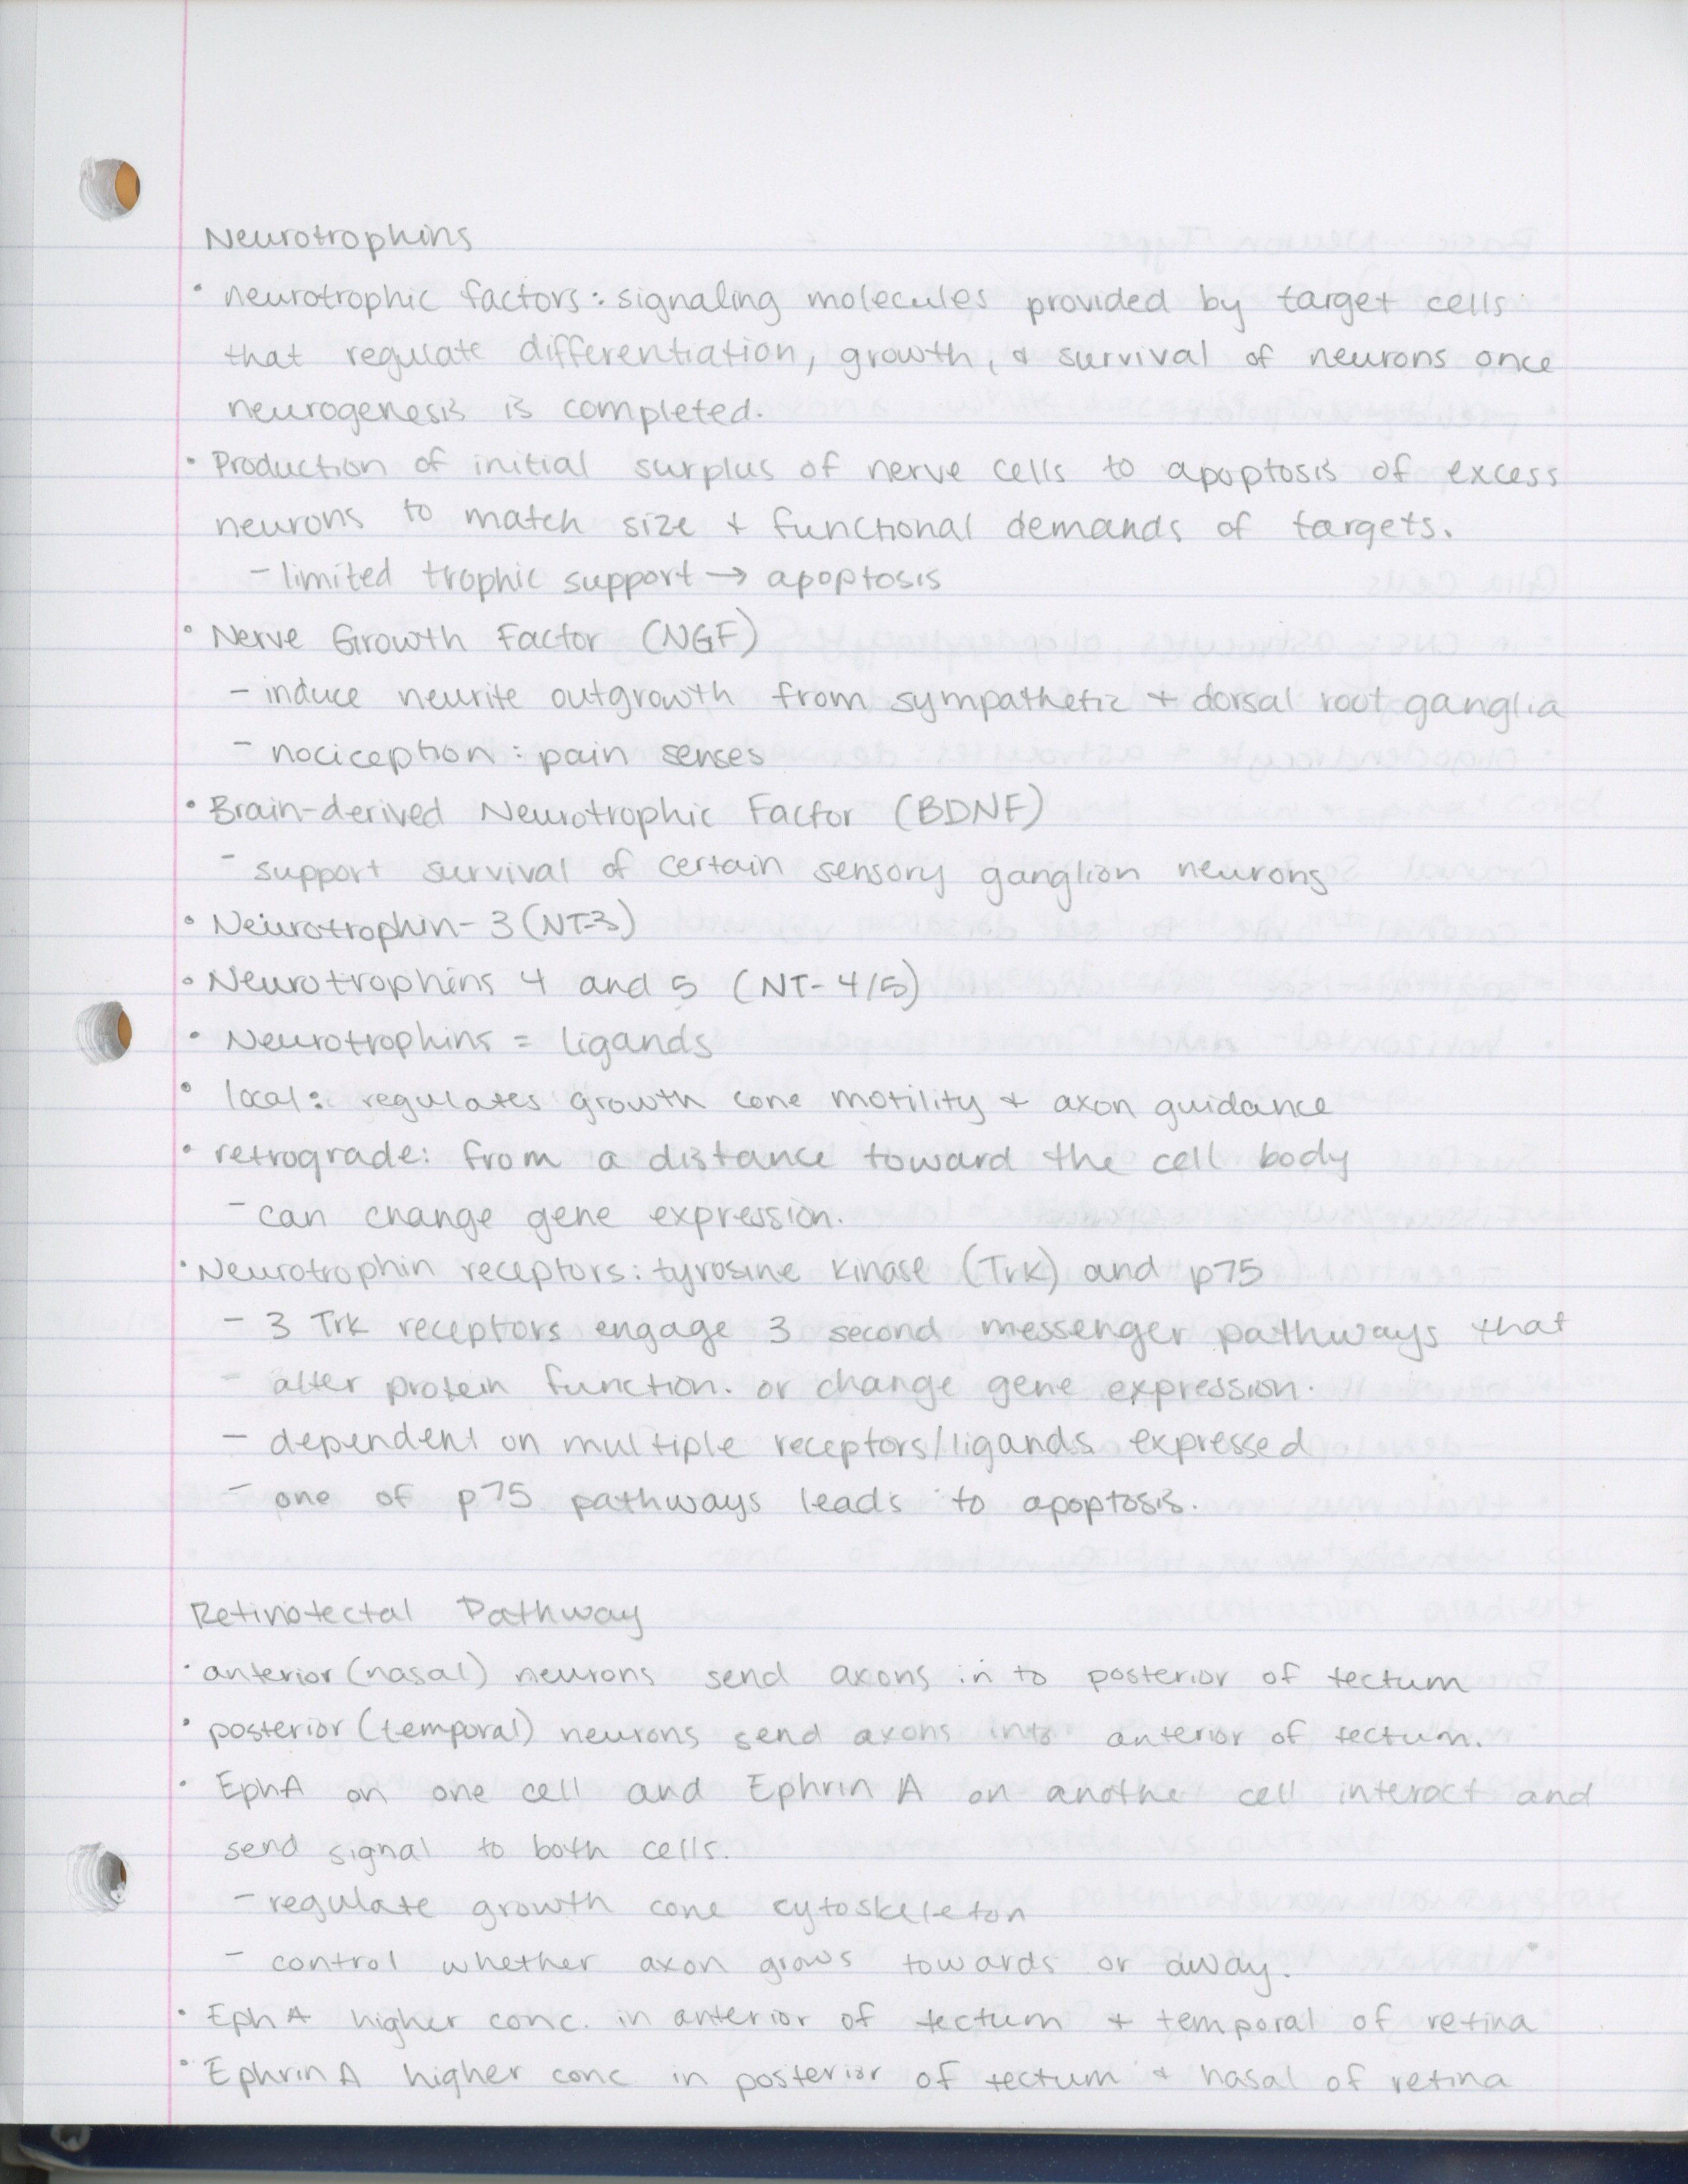 Neurotrophins
• neurotrophic factors: signaling molecules provided by target cells
that regulate differentiation, growth, & survival of neurons once
neurogenesis is completed.
• Production of initial surplus of nerve cells to apoptosis of excess
neurons to match size + functional demands of targets.
- limited trophic support → apoptosis
• Nerve Growth Factor (NGF)
- induce neurite outgrowth from sympathetic + dorsal root ganglia
- nociception: pain senses
• Brain-derived Neurotrophic Factor (BDNF)
- support survival of certain sensory ganglion neurons
• Neurotrophin-3 (NT-3)
• Neurotrophins 4 and 5 (NT-4/5)
• Neurotrophins = ligands
• local: regulates growth cone motility + axon guidance
• retrograde: from a distance toward the cell body
- can change gene expression.
• Neurotrophin receptors: tyrosine kinase (Trk) and p75
- 3 Trk receptors engage 3 second messenger pathways that
- alter protein function. or change gene expression.
- dependent on multiple receptors/ligands expressed
- one of p75 pathways leads to apoptosis.
Retinotectal Pathway
• anterior (nasal) neurons send axons in to posterior of tectum
• posterior (temporal) neurons send axons into anterior of tectum.
• EphA on one cell and Ephrin A on anothe cell interact and
send signal to both cells.
- regulate growth cone cytoskeleton
- control whether axon grows towards or away.
• Eph A higher conc. in anterior of tectum + temporal of retina
• Ephrin A higher conc in posterior of tectum + nasal of retina